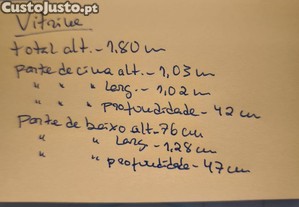 CustoJusto.pt
Vitrine
total alt. - 1.80 m
parte de cima alt. - 1,03 m
" " " Larg. - 1,02 m
" " " profundidade - 42 cm
parte de baixo alt - 76 cm
" " Larg - 1,28 cm
" " profundidade - 47 cm